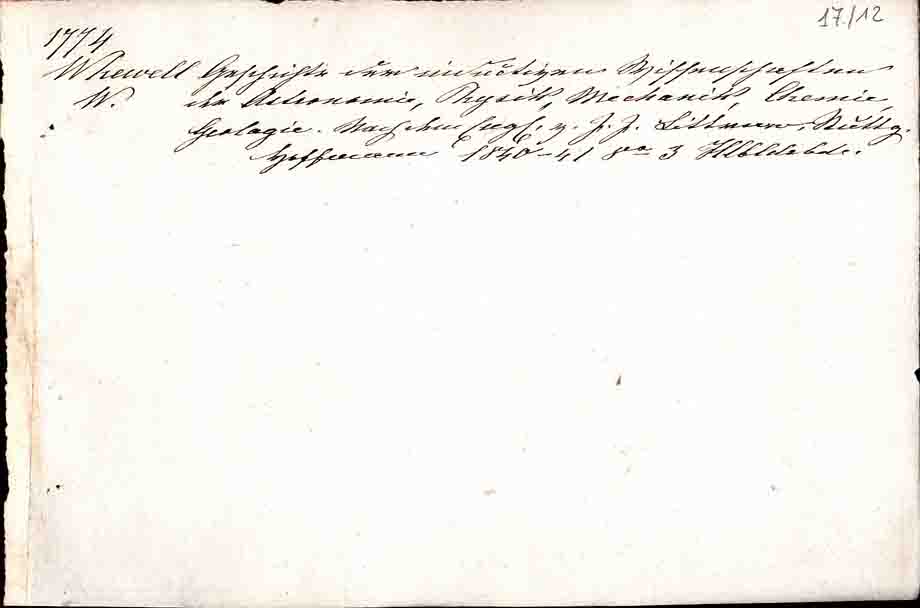 17./12
1774
Whewell Geschichte der inductiven Wissenschaften
W. der Astronomie, Physik, Mechanik, Chemie,
Geologie. Nach dem Engl. v. J. J. Littrow. Stuttg.
Hoffmann 1840-41 8vo 3